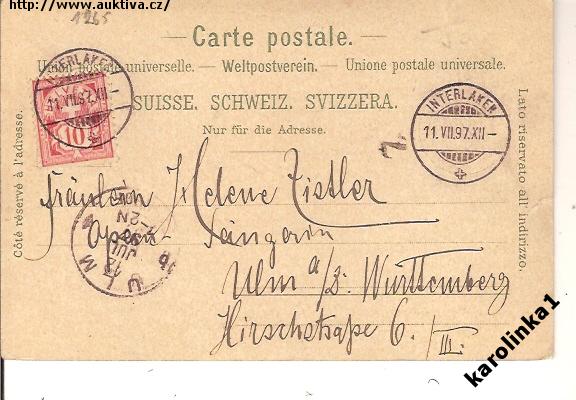 http://www.auktiva.cz/
1265
Carte postale.
Union postale universelle. — Weltpostverein. — Unione postale universale.
SUISSE. SCHWEIZ. SVIZZERA.
Nur für die Adresse.
Côté réservé à l'adresse.
Lato riservato all' indirizzo.
INTERLAKEN
11.VII.97.XII–
10
INTERLAKEN
11.VII.97.XII–
2.
Fräulein Helene Zistler
Opern-Sängerin
Ulm a/D. Württemberg
Hirschstraße 6./III.
ULM
12
JUL
karolinka1